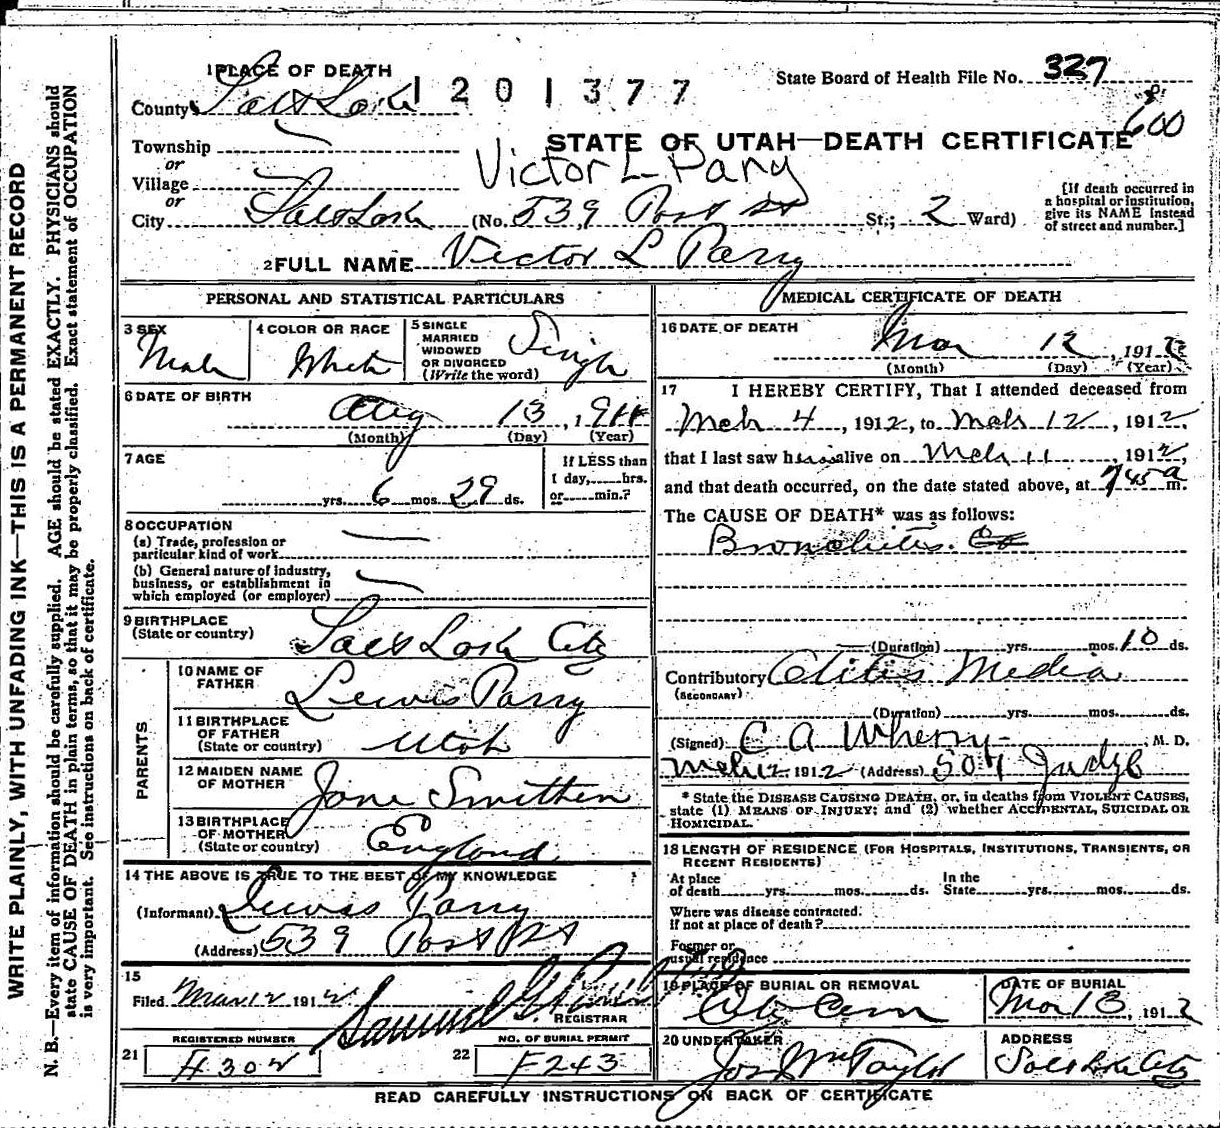 WRITE PLAINLY, WITH UNFADING INK—THIS IS A PERMANENT RECORD
N. B.—Every item of information should be carefully supplied. AGE should be stated EXACTLY. PHYSICIANS should
state CAUSE OF DEATH in plain terms, so that it may be properly classified. Exact statement of OCCUPATION
is very important. See instructions on back of certificate.
1 PLACE OF DEATH
County Salt Lake
1201377
State Board of Health File No. 327
600
STATE OF UTAH—DEATH CERTIFICATE
Township
or
Village
or
Victor L Pary
City Salt Lake (No. 539 Post St St.; 2 Ward)
[If death occurred in
a hospital or institution,
give its NAME instead
of street and number.]
2 FULL NAME Victor L Parry
PERSONAL AND STATISTICAL PARTICULARS
3 SEX
Male
4 COLOR OR RACE
White
5 SINGLE
MARRIED
WIDOWED
OR DIVORCED
(Write the word)
Single
6 DATE OF BIRTH
Aug 13, 1911
(Month) (Day) (Year)
7 AGE
yrs. 6 mos. 29 ds.
If LESS than
1 day, hrs.
or min.?
8 OCCUPATION
(a) Trade, profession or
particular kind of work
(b) General nature of industry,
business, or establishment in
which employed (or employer)
9 BIRTHPLACE
(State or country)
Salt Lake City
PARENTS
10 NAME OF
FATHER
Lewis Parry
11 BIRTHPLACE
OF FATHER
(State or country)
Utah
12 MAIDEN NAME
OF MOTHER
Jane Smithen
13 BIRTHPLACE
OF MOTHER
(State or country)
England
14 THE ABOVE IS TRUE TO THE BEST OF MY KNOWLEDGE
(Informant) Lewis Parry
(Address) 539 Post St
15
Filed Mar 12 1912 Samuel G.
REGISTRAR
REGISTERED NUMBER
21 H302
NO. OF BURIAL PERMIT
22 F243
MEDICAL CERTIFICATE OF DEATH
16 DATE OF DEATH
Mar 12, 1912
(Month) (Day) (Year)
17 I HEREBY CERTIFY, That I attended deceased from
Mch 4, 1912, to Mch 12, 1912,
that I last saw him alive on Mch 11, 1912,
and that death occurred, on the date stated above, at 7 45 a m.
The CAUSE OF DEATH* was as follows:
Bronchitis.
(Duration) yrs. mos. 10 ds.
Contributory Otitis Media
(SECONDARY)
(Duration) yrs. mos. ds.
(Signed) C A Wherry M. D.
Mch 12 1912 (Address) 504 Judge
* State the DISEASE CAUSING DEATH, or, in deaths from VIOLENT CAUSES,
state (1) MEANS OF INJURY; and (2) whether ACCIDENTAL, SUICIDAL OR
HOMICIDAL.
18 LENGTH OF RESIDENCE (FOR HOSPITALS, INSTITUTIONS, TRANSIENTS, OR
RECENT RESIDENTS)
At place
of death yrs. mos. ds.
In the
State yrs. mos. ds.
Where was disease contracted,
if not at place of death?
Former or
usual residence
19 PLACE OF BURIAL OR REMOVAL
City Cem
DATE OF BURIAL
Mar 13, 1912
20 UNDERTAKER
Jos Wm Taylor
ADDRESS
Salt Lake City
READ CAREFULLY INSTRUCTIONS ON BACK OF CERTIFICATE